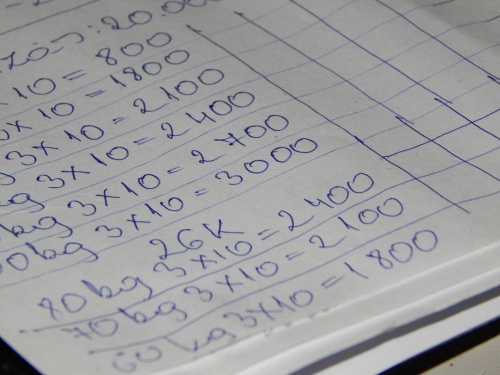 :20.00
x10=800
x10=1800
3x10=2100
3x10=2400
kg 3x10=2700
0kg 3x10=3000
26K
80kg 3x10=2400
70kg 3x10=2100
60kg 3x10=1800